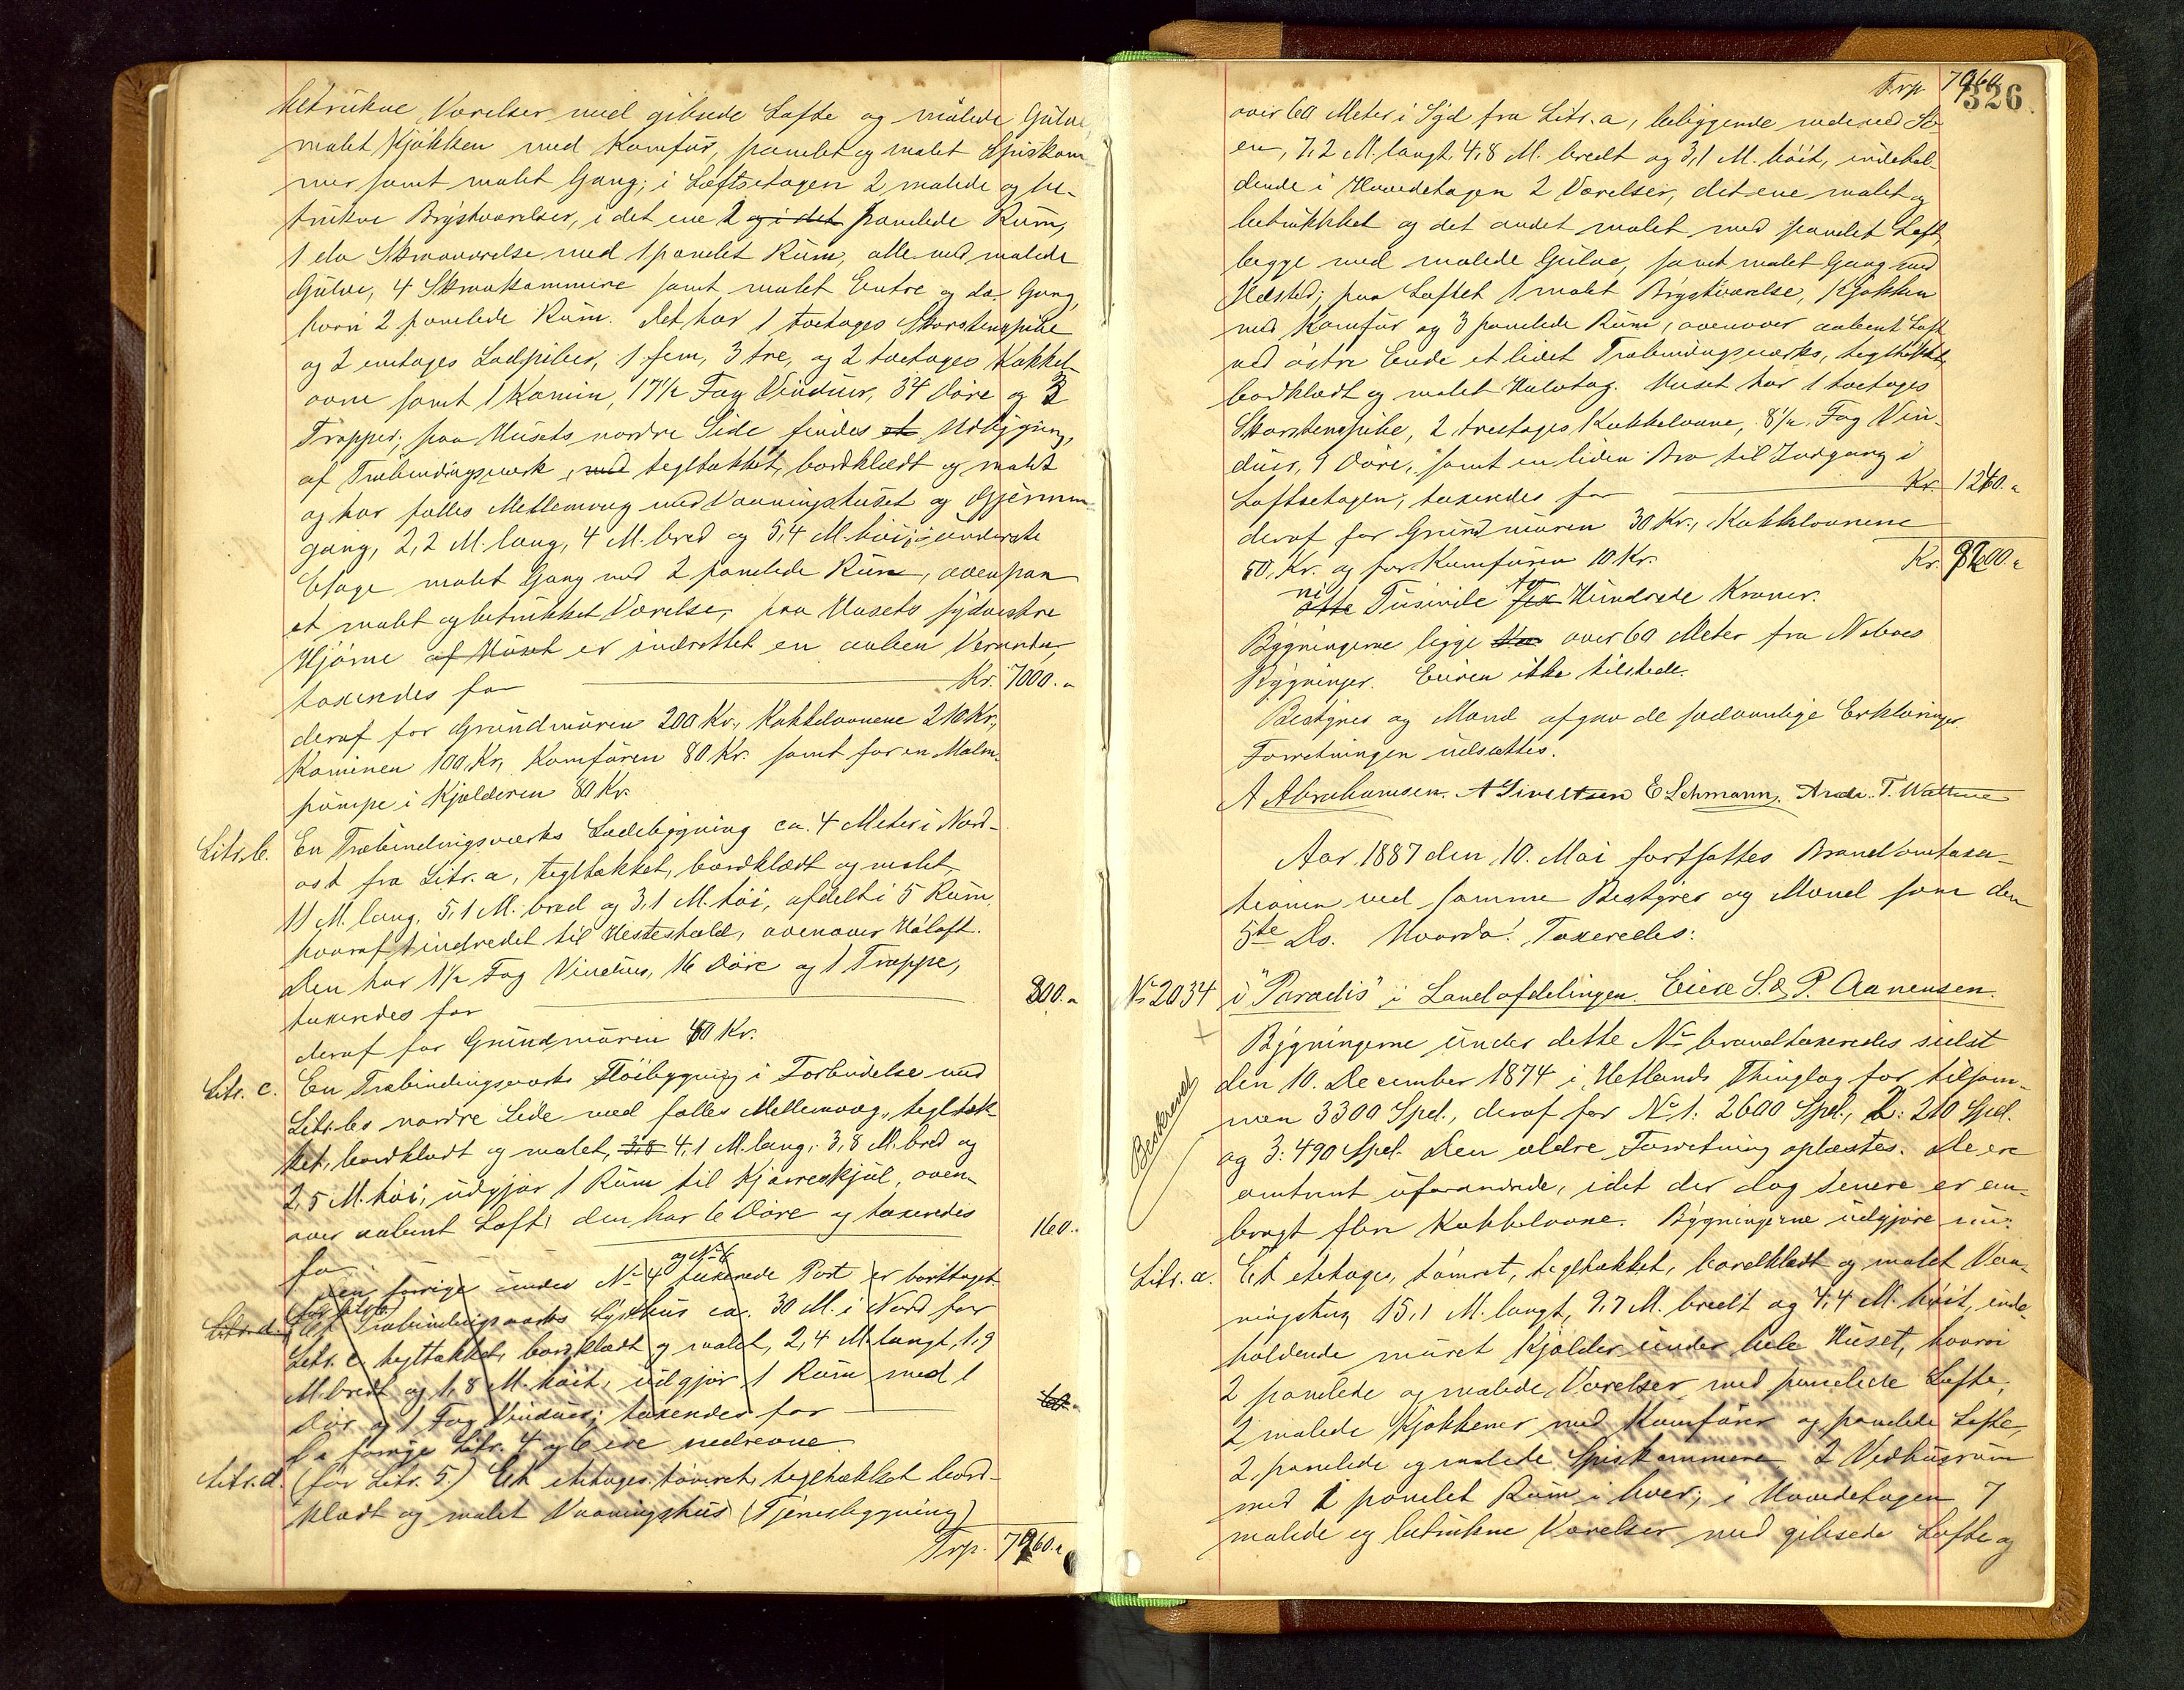 betrukne Værelser med gibsede Lofte og malede Gulve,
malet Kjøkken med Komfur, panelet og malet Spiskam-
mer samt malet Gang; i Loftsetagen 2 malede og be-
trukne Brystværelser, i det ene 2 og i det panelede Rum,
1 do Skraaværelse med 1 panelet Rum, alle med malede
Gulve, 4 Skraakammere samt malet Entre og do. Gang,
hvori 2 panelede Rum. Det har 1 toetages Skorstenspibe
og 2 enetages Ladpiber, 1 fem, 3 tre, og 2 toetages Kakkel-
ovne samt 1 Kamin, 17 1/2 Fag Vinduer, 34 Døre og 3
Trapper; paa Husets nordre Side findes et Udbygning,
af Træbindingsværk, med tegltækket, bordklædt og malet
og har fælles Mellemvæg med Vaaningshuset og Gjennem-
gang, 2,2 M. lang, 4 M. bred og 5,4 M. høi; i underste
Etage malet Gang med 2 panelede Rum, ovenpaa
et malet og betrukket Værelse, paa Husets sydvestre
Hjørne af Huset er indrettet en aaben Veranda,
taxeredes for Kr. 7000.
deraf for Grundmuren 200 Kr., Kakkelovnene 210 Kr.,
Kaminen 100 Kr., Komfuren 80 Kr. samt for en Malm-
pumpe i Kjælderen 80 Kr.
Litr. b. En Træbindingsværks Ladebygning ca. 4 Meter i Nord-
ost fra Litr. a, tegltækket, bordklædt og malet,
11 M. lang, 5,1 M. bred og 3,1 M. høi, afdelt i 5 Rum,
hvoraf 1 indredet til Hestestald, ovenover Høloft.
Den har 1 1/2 Fag Vinduer, 16 Døre og 1 Trappe,
taxeredes for 800.
deraf for Grundmuren 40 Kr.
Litr. c. En Træbindingsværks Fløibygning i Forbindelse med
Litr. bs nordre Side med fælles Mellemvæg, tegltæk-
ket, bordklædt og malet, 3,8 4,1 M. lang, 3,8 M. bred og
2,5 M. høi, udgjør 1 Rum til Kjærreskjul, oven-
over aabent Loft; den har 6 Døre og taxeredes
for 160.
og No 6
Den forrige under No 4 taxerede Port er borttaget
Litr. d. Et Træbindingsværks Lysthus ca. 30 M. i Nord for
Litr. c, tegltækket, bordklædt og malet, 2,4 M. langt, 1,9
M. bredt og 1,8 M. høit, udgjør 1 Rum med 1
Dør og 1 Fag Vinduer; taxeredes for 60.
De forrige Litr. 4 og 6 ere nedrevne.
Litr. d. (før Litr. 5.) Et etetages, tømret, tegltækket bord-
klædt og malet Vaaningshus (Tjenerbygning)
Trp. 7960.
Trp. 7960
326
over 60 Meter i Syd fra Litr. a, beliggende nede ved Sø-
en, 7,2 M. langt, 4,8 M. bredt og 3,1 M. høit, indehol-
dende i Hovedetagen 2 Værelser, det ene malet og
betrukket og det andet malet med panelet Loft,
begge med malede Gulve, samt malet Gang med
Ildsted; paa Loftet 1 malet Brystværelse, Kjøkken
med Komfur og 3 panelede Rum, ovenover aabent Loft
ved østre Ende et lidet Træbindingsværks, tegltækket,
bordklædt og malet Halvtag. Huset har 1 toetages
Skorstenspibe, 2 treetages Kakkelovne, 8 1/2 Fag Vin-
duer, 9 Døre, samt en liden Bro til Indgang i
Loftsetagen; taxeredes for Kr. 1240.
deraf for Grundmuren 30 Kr., Kakkelovnene
50 Kr. og for Komfuren 10 Kr. Kr. 9200.
ni to
otte Tusinde sex Hundrede Kroner.
Bygningerne ligge over 60 Meter fra Naboes
Bygninger. Eieren ikke tilstede.
Bestyrer og Mænd afgav de sædvanlige Erklæringer.
Forretningen udsattes.
A Abrahamsen. A Sivertsen E Lehmann. Andr. T. Wattne
Aar 1887 den 10. Mai fortsattes Brandomtaxa-
tionen ved samme Bestyrer og Mænd som den
5te Ds. Hvorda: Taxeredes:
No 2034 i "Paradis" i Landafdelingen. Eiere S. & P. Aanensen.
Beskrevet
Bygningerne under dette No brandtaxeredes sidst
den 10. December 1874 i Hetlands Thinglag for tilsam-
men 3300 Spd., deraf for No 1: 2600 Spd., 2: 210 Spd.
og 3: 490 Spd. Den ældre Forretning oplæstes. De ere
omtrent uforandrede, idet der dog senere er an-
bragt flere Kakkelovne. Bygningerne udgjøre nu:
Litr. a. Et etetages, tømret, tegltækket, bordklædt og malet Vaa-
ningshus, 15,1 M. langt, 9,7 M. bredt og 4,4 M. høit, inde-
holdende muret Kjælder under hele Huset, hvori
2 panelede og malede Værelser med panelede Lofte,
2 malede Kjøkkener med Komfurer og panelede Lofte,
2 panelede og malede Spiskammere 2 Vedhusrum
med 1 panelet Rum i hver; i Hovedetagen 7
malede og betrukne Værelser med gibsede Lofte og